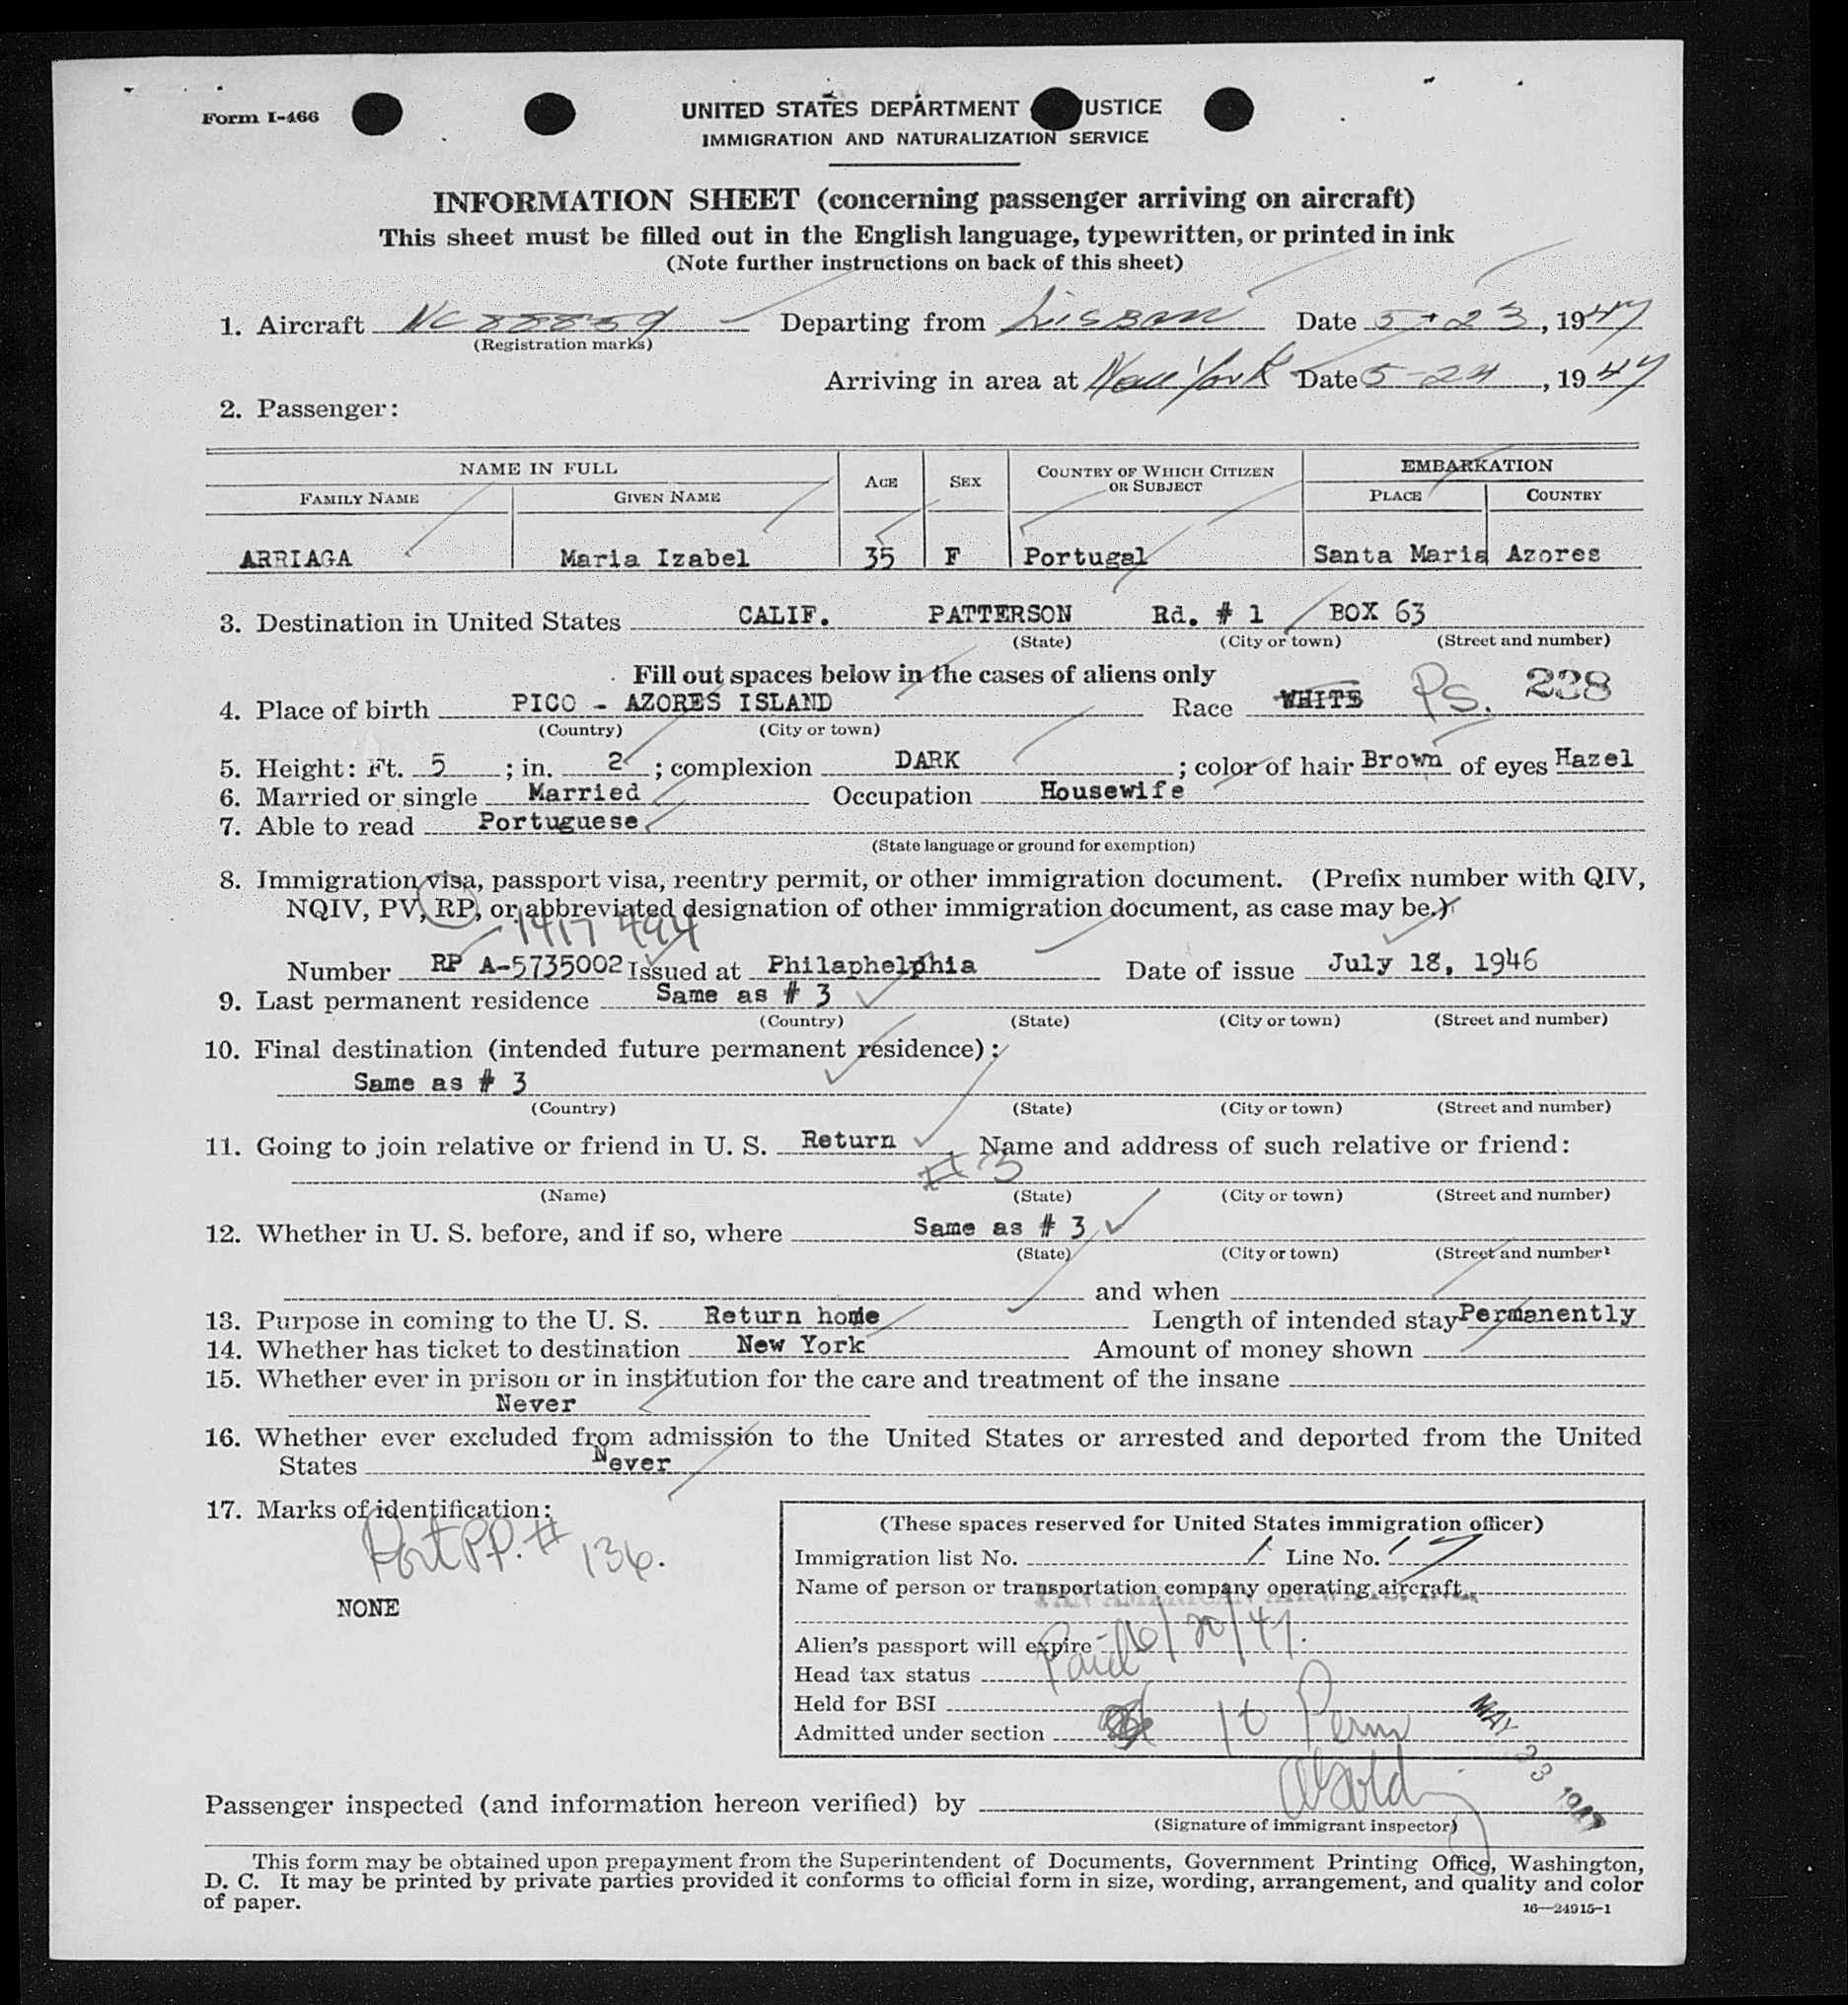 Form I-466
UNITED STATES DEPARTMENT USTICE
IMMIGRATION AND NATURALIZATION SERVICE
INFORMATION SHEET (concerning passenger arriving on aircraft)
This sheet must be filled out in the English language, typewritten, or printed in ink
(Note further instructions on back of this sheet)
1. Aircraft NC 88859 Departing from Lisbon Date 5-23, 1947
(Registration marks)
Arriving in area at New York Date 5-24, 1947
2. Passenger:
NAME IN FULL AGE SEX COUNTRY OF WHICH CITIZEN OR SUBJECT EMBARKATION
FAMILY NAME GIVEN NAME PLACE COUNTRY
ARRIAGA Maria Izabel 35 F Portugal Santa Maria Azores
3. Destination in United States CALIF. PATTERSON Rd. # 1 BOX 63
(State) (City or town) (Street and number)
Fill out spaces below in the cases of aliens only
4. Place of birth PICO - AZORES ISLAND Race WHITE Ps. 238
(Country) (City or town)
5. Height: Ft. 5; in. 2; complexion DARK; color of hair Brown of eyes Hazel
6. Married or single Married Occupation Housewife
7. Able to read Portuguese
(State language or ground for exemption)
8. Immigration visa, passport visa, reentry permit, or other immigration document. (Prefix number with QIV,
NQIV, PV, RP, or abbreviated designation of other immigration document, as case may be.)
1417494
Number RP A-5735002 Issued at Philaphelphia Date of issue July 18, 1946
9. Last permanent residence Same as # 3
(Country) (State) (City or town) (Street and number)
10. Final destination (intended future permanent residence):
Same as # 3
(Country) (State) (City or town) (Street and number)
11. Going to join relative or friend in U. S. Return. Name and address of such relative or friend:
# 3
(Name) (State) (City or town) (Street and number)
12. Whether in U. S. before, and if so, where Same as # 3
(State) (City or town) (Street and number)
and when
13. Purpose in coming to the U. S. Return home Length of intended stay Permanently
14. Whether has ticket to destination New York Amount of money shown
15. Whether ever in prison or in institution for the care and treatment of the insane
Never
16. Whether ever excluded from admission to the United States or arrested and deported from the United
States Never
17. Marks of identification:
Port PP. # 136.
NONE
(These spaces reserved for United States immigration officer)
Immigration list No. 1 Line No. 17
Name of person or transportation company operating aircraft
PAN AMERICAN AIRWAYS, INC.
Alien's passport will expire - 6/20/47.
Head tax status Paid
Held for BSI
Admitted under section 10 Perm
MAY 23 1947
Passenger inspected (and information hereon verified) by
(Signature of immigrant inspector)
This form may be obtained upon prepayment from the Superintendent of Documents, Government Printing Office, Washington,
D. C. It may be printed by private parties provided it conforms to official form in size, wording, arrangement, and quality and color
of paper.
16—24915-1